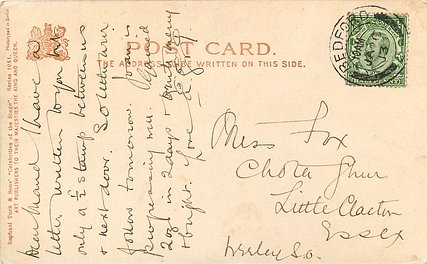 POST CARD.
THE ADDRESS TO BE WRITTEN ON THIS SIDE.
BEDFORD
Raphael Tuck & Sons' "Celebrities of the Stage". Series 1081.
ART PUBLISHERS TO THEIR MAJESTIES THE KING AND QUEEN.
Dear Maud I have a
letter written to you
only a ½ stamp between us
& next door. So letter will
follow tomorrow. Joan is
progressing well. Gained
2ozs in 2 days &
Love
Miss Fox
Chota Ghur
Little Clacton
Essex
Weeley S.o.